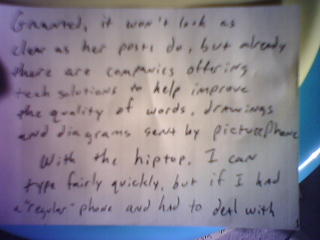 Granted, it won't look as
clear as her posts do, but already
there are companies offering
tech solutions to help improve
the quality of words, drawings
and diagrams sent by picturephone
With the hiptop, I can
type fairly quickly, but if I had
a "regular" phone and had to deal with